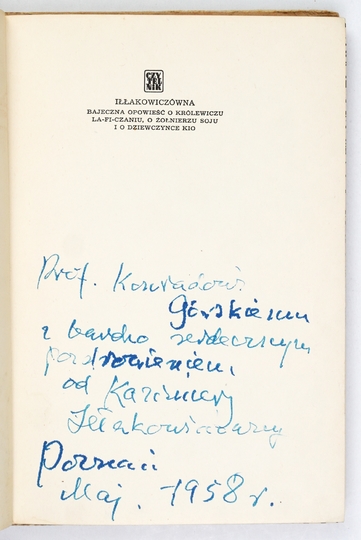 CZY
TEL
NIK
IŁŁAKOWICZÓWNA
BAJECZNA OPOWIEŚĆ O KRÓLEWICZU
LA-FI-CZANIU, O ŻOŁNIERZU SOJU
I O DZIEWCZYNCE KIO
Prof. Konradowi
Górskiemu
z bardzo serdecznym
pozdrowieniem,
od Kazimiery
Iłłakowiczówny
Poznań
Maj. 1958 r.